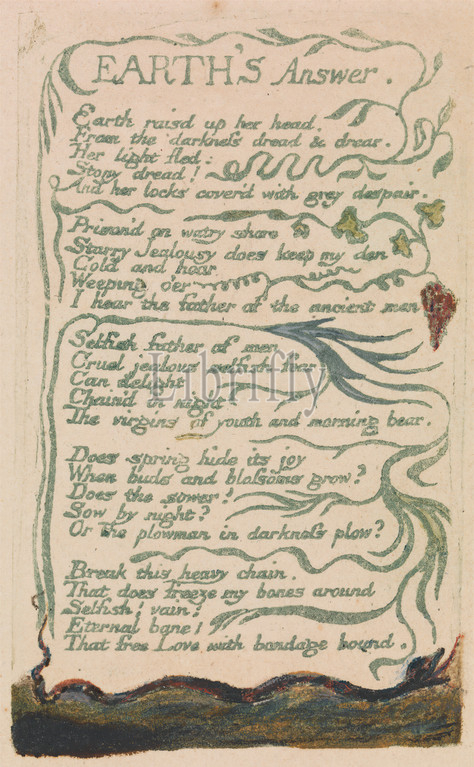 EARTH'S Answer.
Earth rais'd up her head,
From the darkness dread & drear.
Her light fled:
Stony dread!
And her locks cover'd with grey despair.
Prison'd on watry shore
Starry Jealousy does keep my den
Cold and hoar
Weeping o'er
I hear the father of the ancient men
Selfish father of men
Cruel jealous selfish fear
Can delight
Chain'd in night
The virgins of youth and morning bear.
Does spring hide its joy
When buds and blossoms grow?
Does the sower?
Sow by night?
Or the plowman in darkness plow?
Break this heavy chain.
That does freeze my bones around
Selfish! vain!
Eternal bane!
That free Love with bondage bound.
Librifly